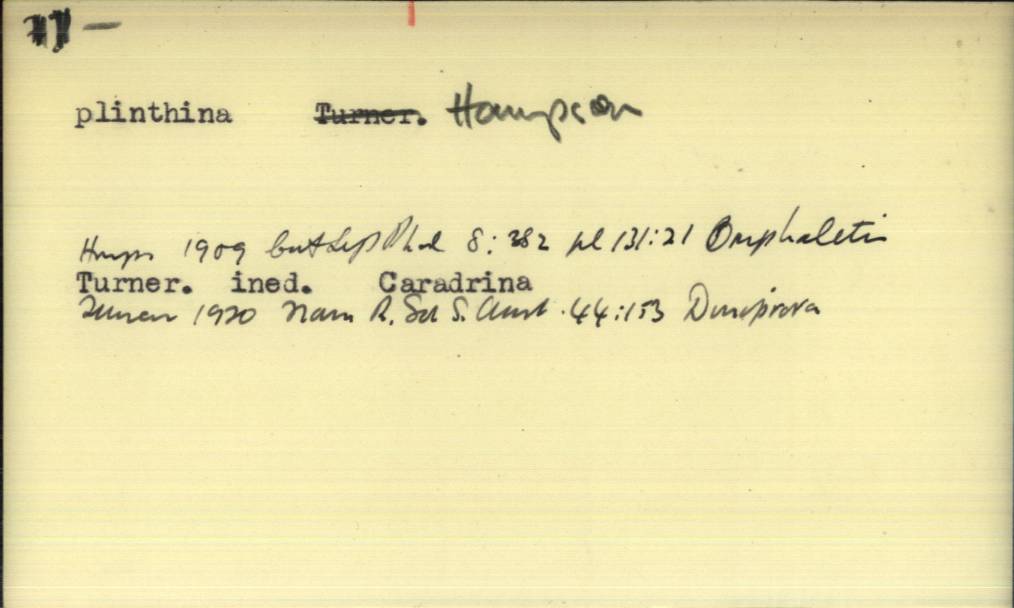 plinthina Turner. Hampson
Hmps 1909 Cat Lep Phal 8: 382 pl 131:21 Omphaletis
Turner. ined. Caradrina
Turner 1920 Trans R. Soc S. Aust. 44:153